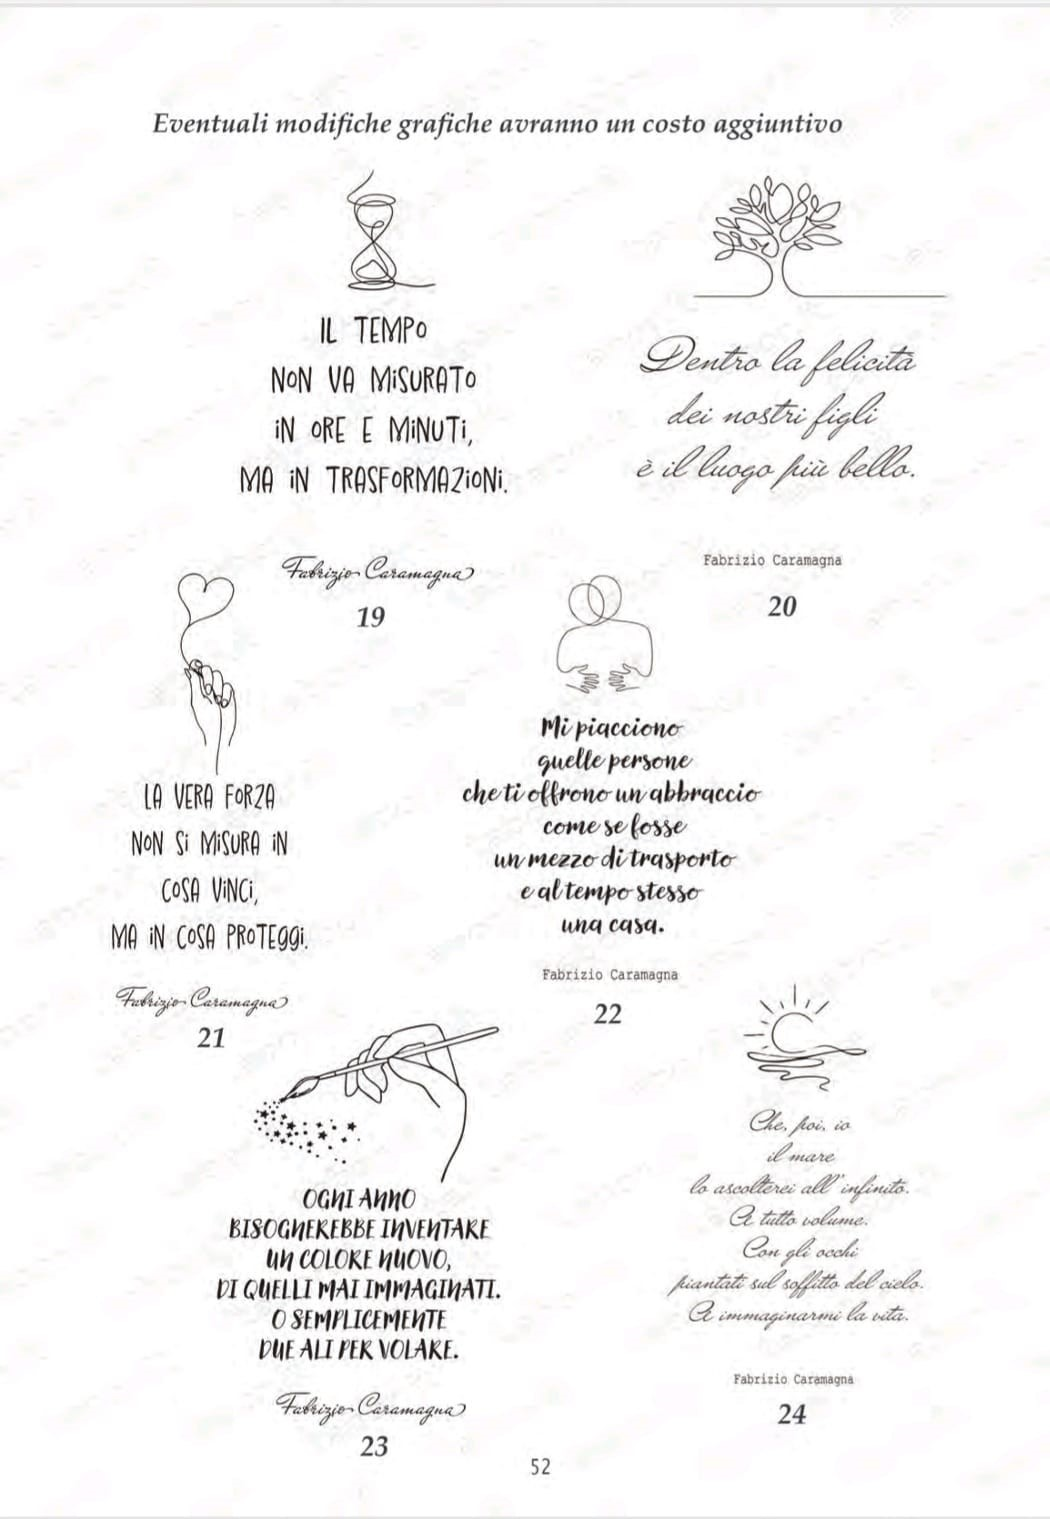 Eventuali modifiche grafiche avranno un costo aggiuntivo
IL TEMPO
NON VA MISURATO
IN ORE E MINUTI,
MA IN TRASFORMAZIONI.
Fabrizio Caramagna
19
Dentro la felicità
dei nostri figli
è il luogo più bello.
Fabrizio Caramagna
20
LA VERA FORZA
NON SI MISURA IN
COSA VINCI,
MA IN COSA PROTEGGI.
Fabrizio Caramagna
21
Mi piacciono
quelle persone
che ti offrono un abbraccio
come se fosse
un mezzo di trasporto
e al tempo stesso
una casa.
Fabrizio Caramagna
22
OGNI ANNO
BISOGNEREBBE INVENTARE
UN COLORE NUOVO,
DI QUELLI MAI IMMAGINATI.
O SEMPLICEMENTE
DUE ALI PER VOLARE.
Fabrizio Caramagna
23
Che, poi, io
il mare
lo ascolterei all'infinito.
A tutto volume.
Con gli occhi
piantati sul soffitto del cielo.
A immaginarmi la vita.
Fabrizio Caramagna
24
52